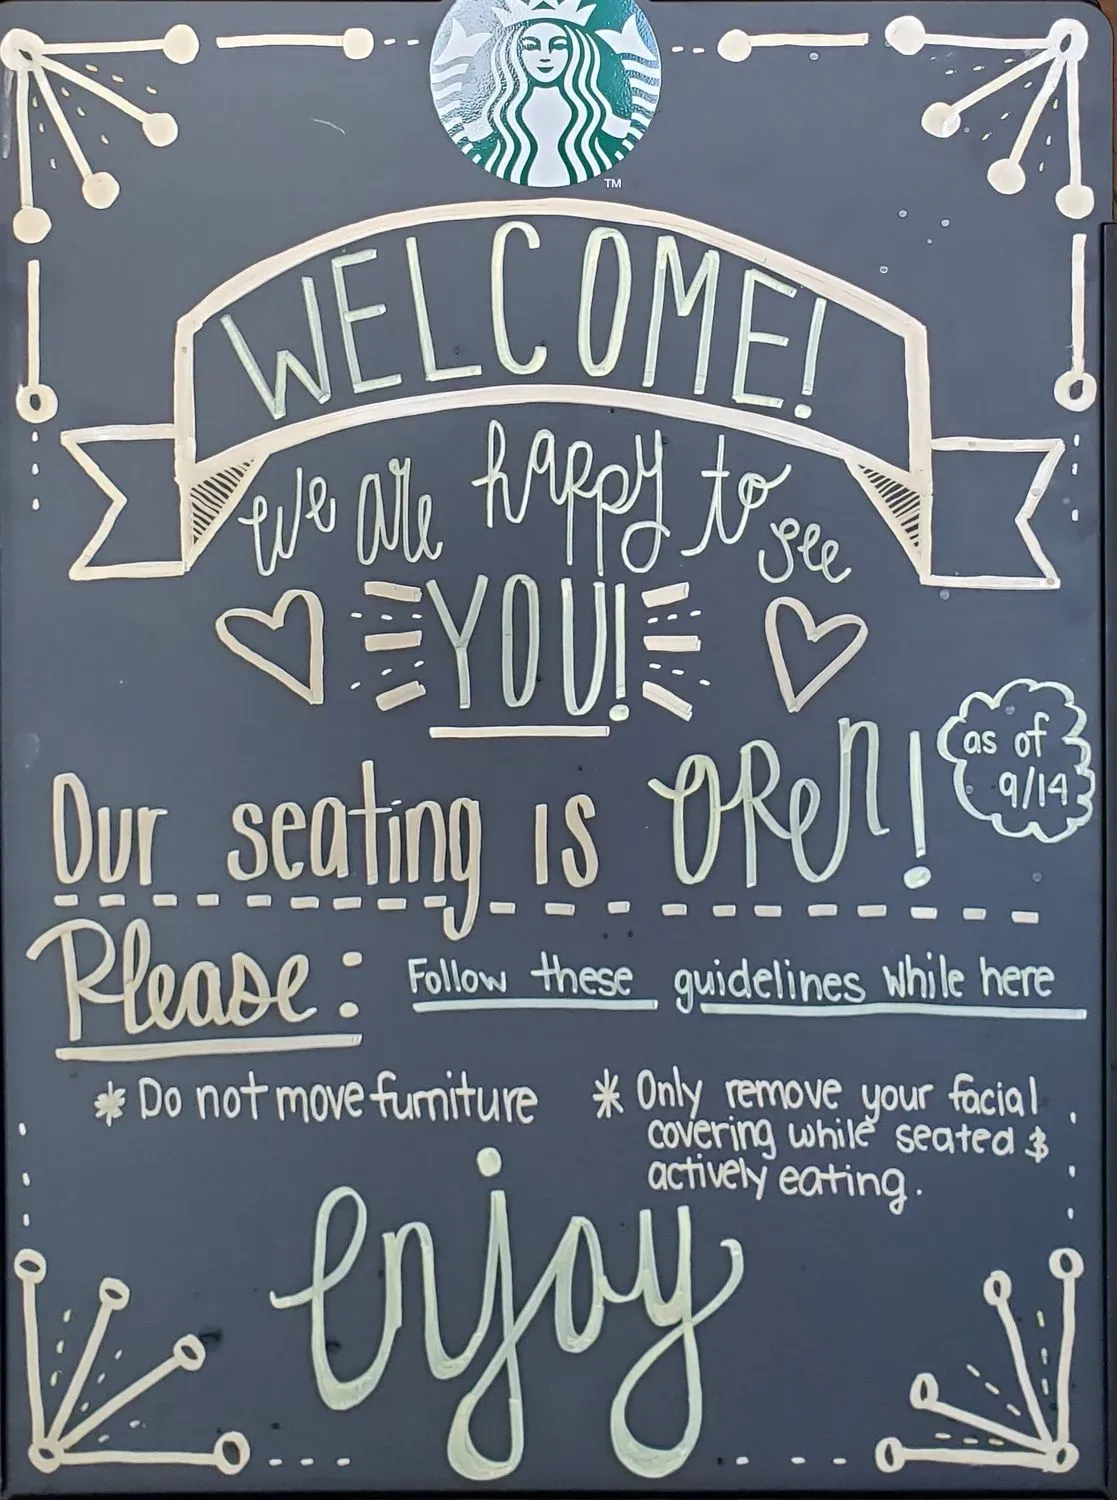 TM
WELCOME!
We are happy to see
YOU!
Our seating is OPen!
as of
9/14
Please: Follow these guidelines while here
* Do not move furniture
* Only remove your facial
covering while seated &
actively eating.
enjoy